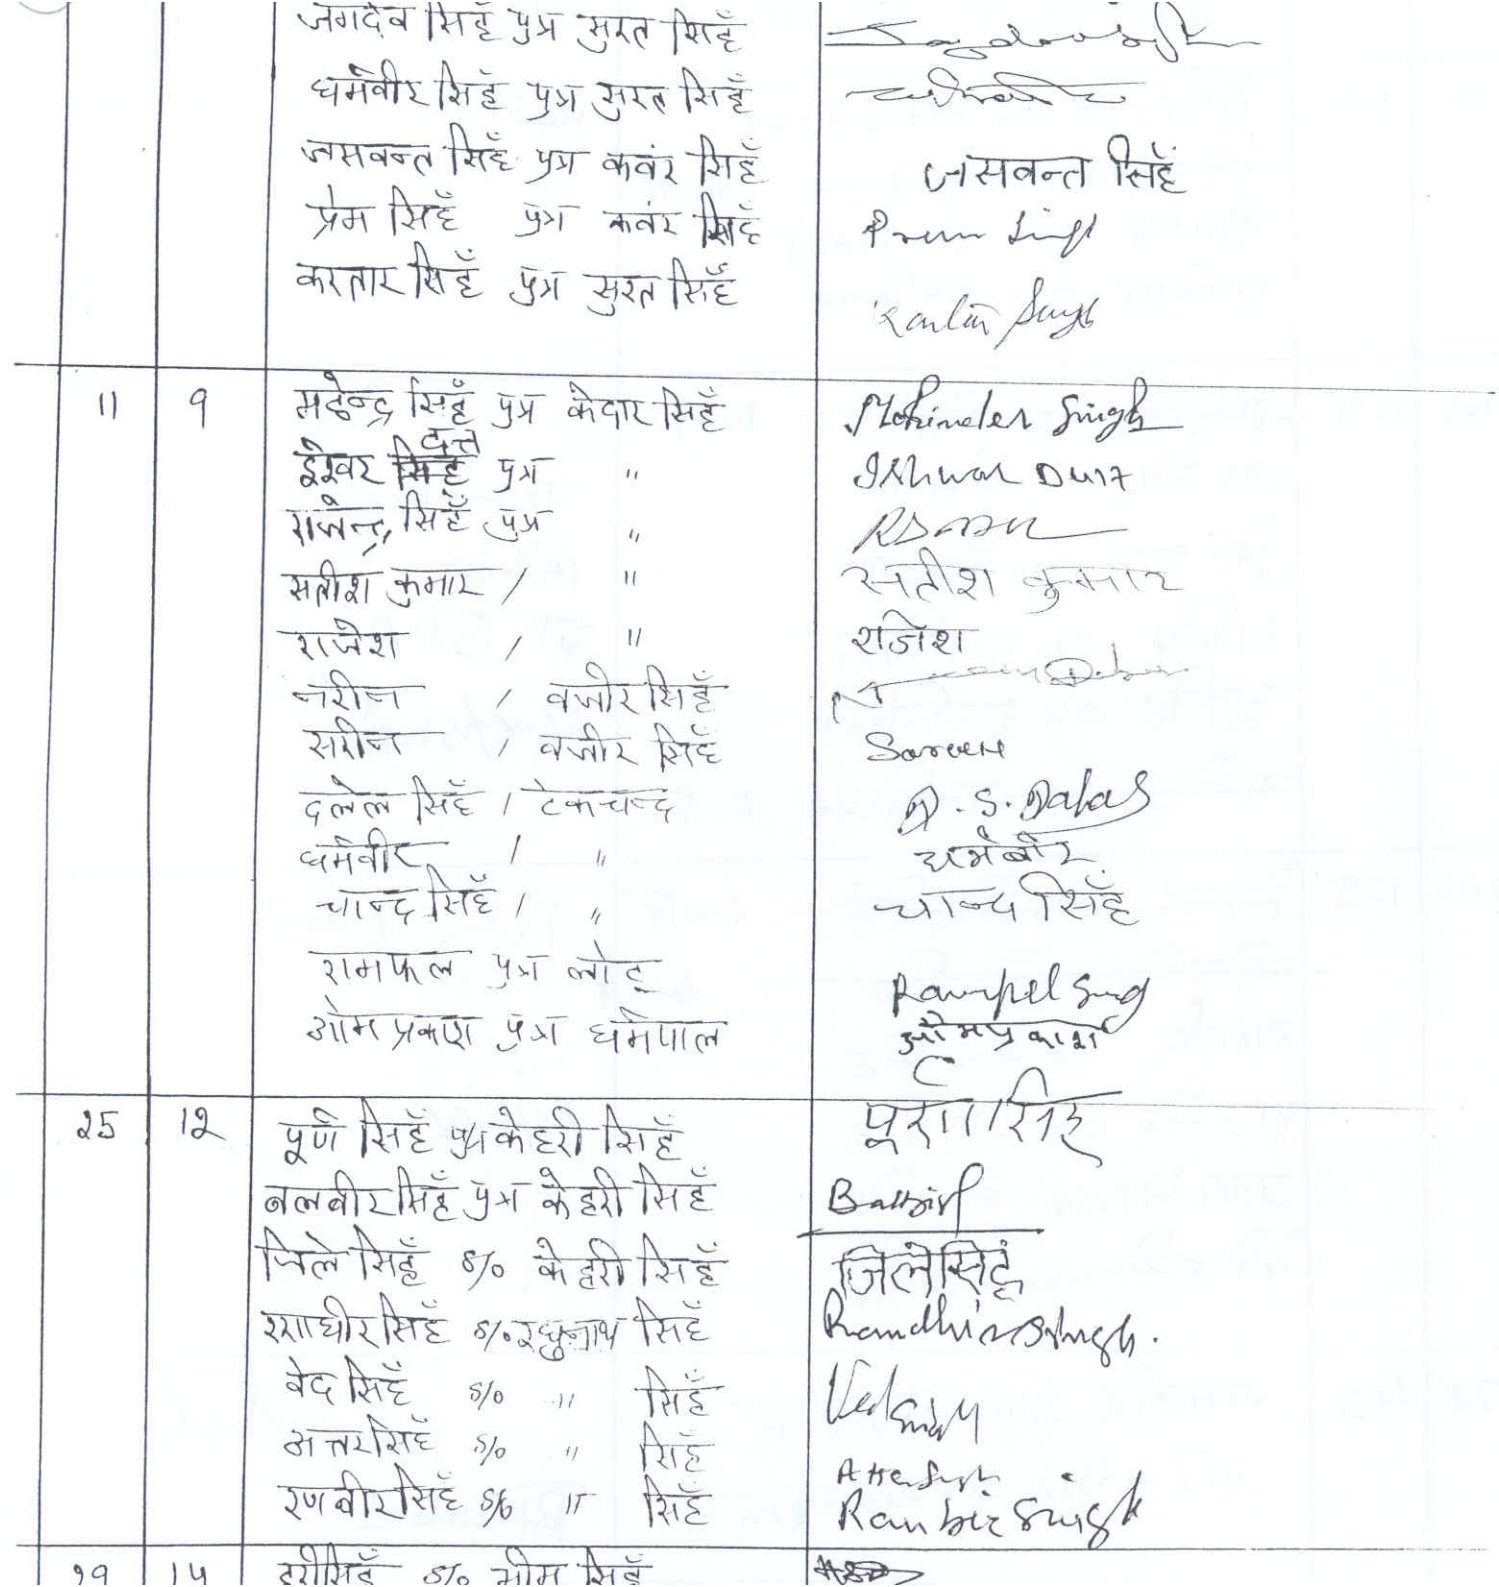 जगदेव सिहँ पुत्र सुरत सिहँ
धर्मवीर सिहँ पुत्र सुरत सिहँ
जसवन्त सिहँ पुत्र कवंर सिहँ जसवन्त सिहँ
प्रेम सिहँ पुत्र कवंर सिहँ Prem Singh
करतार सिहँ पुत्र सुरत सिहँ Kartar Singh
11 9 महेन्द्र सिहँ पुत्र केदार सिहँ Mohinder Singh
दत्त
ईश्वर सिहँ पुत्र " Ishwar Dutt
राजेन्द्र सिहँ पुत्र "
सतीश कुमार / " सतीश कुमार
राजेश / " राजेश
/ वजीर सिहँ
/ वजीर सिहँ
दलेल सिहँ / टेकचन्द D. S. Dabas
धर्मवीर / " धर्मबीर
चान्द सिहँ / " चान्द सिहँ
रामफल पुत्र Rampal Singh
ओम प्रकाश पुत्र धर्मपाल ओमप्रकाश
25 12 पूर्ण सिहँ पुत्र केहरी सिहँ
बलबीर सिहँ पुत्र केहरी सिहँ Balbir
जिले सिहँ S/o केहरी सिहँ जिलेसिंह
रणधीर सिहँ S/o रघुनाथ सिहँ Randhir Singh.
वेद सिहँ S/o " सिहँ Ved Singh
अत्तर सिहँ S/o " सिहँ Atter Singh
रणवीर सिहँ S/o " सिहँ Ranbir Singh
29 14 हरीसिहँ S/o भीम सिहँ